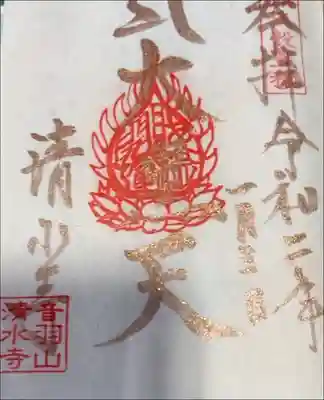 奉拝 令和二年
一月
大黒天
清水寺
音羽山
清水寺